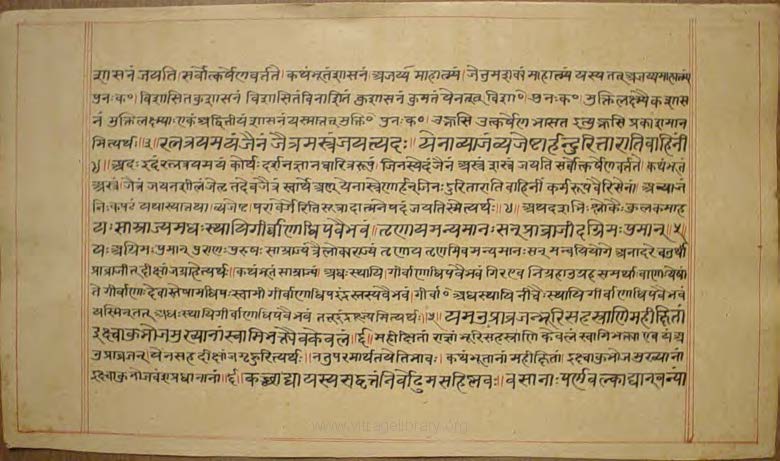 शासनं जयति सर्वोत्कर्षेण वर्त्तते कथंभूतं शासनं अजय्यमाहात्म्यं जेतुमशक्यं माहात्म्यं यस्य तत् अजय्यमाहात्म्यं
पुनः क० विशासितकुशासनं विशासितं विनाशितं कुशासनं कुमतं येन तत् विशा० पुनः क० मुक्तिलक्ष्म्यैकशास
नं मुक्तिलक्ष्म्याः एकं अद्वितीयं शासनं यस्मात्तत् मुक्ति० पुनः क० उद्भासि उत्कर्षेण भासत इत्युद्भासि प्रकाशमान
मित्यर्थः ॥३॥ रत्नत्रयमयं जैनं जैत्रमस्त्रं जयत्यदः ॥ येनाव्याजं व्यजेष्टार्हन्दुरितारातिवाहिनीं
४॥ अदः इदं रत्नत्रयमयं कोर्थः दर्शनज्ञानचारित्ररूपं जिनस्येदं जैनं अस्त्रं शस्त्रं जयति सर्वोत्कर्षेण वर्त्तते कथंभूतं
अस्त्रं जैत्रं जयनशीलं जेतृ तदेव जैत्रं स्वार्थे अण् येनास्त्रेणार्हन् जिनः दुरितारातिवाहिनीं कर्मरूपवैरिसेनां अव्याजं
निःकपटं यथा स्यात्तथा व्यजेष्ट परावेर्जेरिति सूत्रादात्मनेपदं जयति स्मेत्यर्थः ॥४॥ अथ दशभिः श्लोकैः कुलकमाह
यः साम्राज्यमधःस्थायि गीर्वाणाधिपवैभवं ॥ तृणाय मन्यमानः सन् प्राव्राजीदग्रिमः पुमान् ॥५
यः अग्रिमः पुमान् पुराणः पुरुषः साम्राज्यं त्रैलोक्यराज्यं तृणाय तृणमिव मन्यमानः सन् मन्वयियोगे अनादरे चतुर्थी
प्राव्राजीत् दीक्षां जग्राहेत्यर्थः कथंभूतं साम्राज्यं अधःस्थायि गीर्वाणाधिपवैभवं गिर एव निग्रहानुग्रहसमर्था बाणा येषां
ते गीर्वाणा देवास्तेषामधिपः स्वामी गीर्वाणाधिपः इंद्रस्तस्य वैभवं गीर्वा० अधःस्थायि नीचैःस्थायि गीर्वाणाधिपवैभवं
यस्मिन् तत् अधःस्थायि गीर्वाणाधिपवैभवं तत् इत्यर्थः ॥५॥ यमनुप्राव्रजन्भूरिसहस्त्राणि महीक्षितां
इक्ष्वाकुभोजमुख्यानां स्वामिभक्त्यैव केवलं ॥६॥ महीक्षितां राज्ञां भूरिसहस्त्राणि केवलं स्वामिभक्त्या एव यं अ
नुप्राव्रजन् येन सह दीक्षां जगृहुरित्यर्थः ॥ ननु परमार्थतयेति भावः कथंभूतानां महीक्षितां इक्ष्वाकुभोजमुख्यानां
इक्ष्वाकुभोजवंशप्रधानानां ॥६॥ कच्छाद्या यस्य सद्वृत्तं निर्वोढुमसहिष्णवः ॥ वसानाः पर्णवल्काद्यान् वन्यां
www.vitragelibrary.org